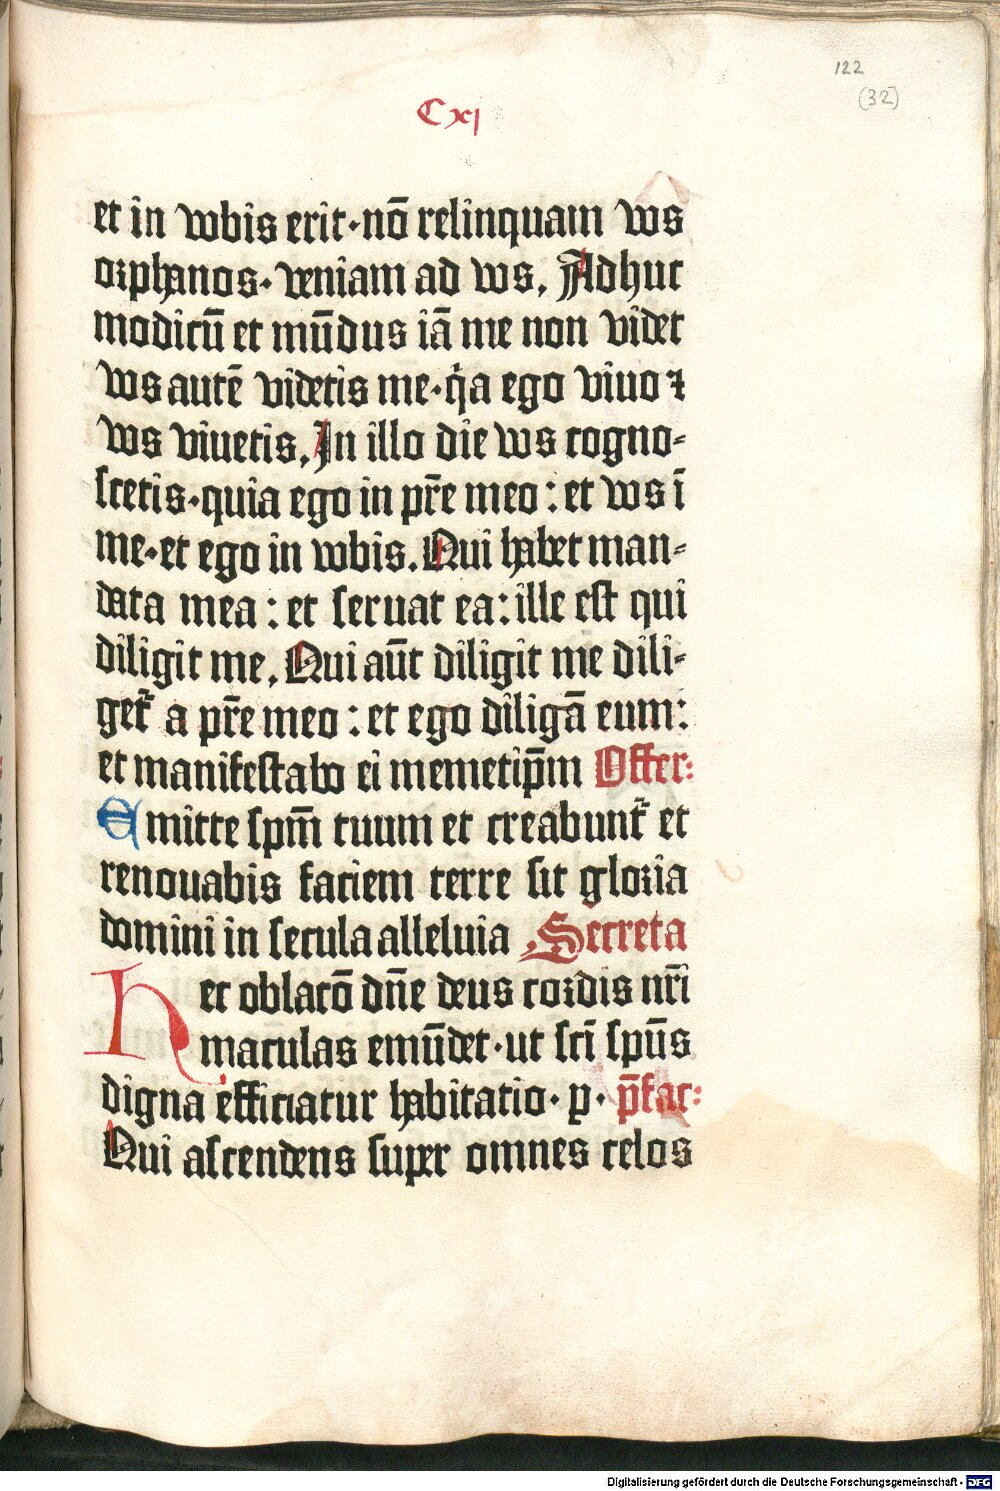 122
(32)
Cxj
et in vobis erit·nō relinquam vos
orphanos· veniam ad vos. Adhuc
modicū et mūdus iā me non videt
vos autē videtis me·q̄a ego viuo ⁊
vos viuetis. In illo die vos cogno-
scetis·quia ego in pr̄e meo : et vos ī
me·et ego in vobis. Qui habet man-
data mea : et seruat ea : ille est qui
diligit me. Qui aūt diligit me dili-
get᷑ a pr̄e meo : et ego diligā eum :
et manifestabo ei memetip̄m Offer:
Emitte sp̄m tuum et creabunt᷑ et
renouabis faciem terre sit gloria
domini in secula alleluia Secreta
Hec oblacō dn̄e deus cordis nr̄i
maculas emūdet·ut sc̄i sp̄us
digna efficiatur habitatio· p· p̄fac:
Qui ascendens super omnes celos
Digitalisierung gefördert durch die Deutsche Forschungsgemeinschaft - DFG